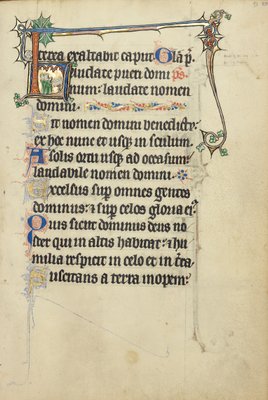 terea exaltabit caput. Gla p̄
Laudate pueri domi ps
num: laudate nomen
domini.
Sit nomen domini benedictū
ex hoc nunc et usqȝ in seculum.
A solis ortu usqȝ ad occasum
laudabile nomen domini.
Excelsus sup̄ omnes gentes
dominus: ⁊ sup̄ celos gloria eiꝰ
Quis sicut dominus deus nos
ter qui in altis habitat: ⁊ hu
milia respicit in celo et in t̄ra
Suscitans a terra inopem: